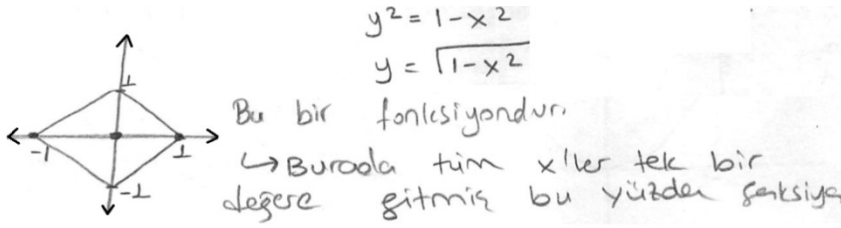 y² = 1 - x²
y = √(1 - x²)
1
-1
1
-1
Bu bir fonksiyondur.
↳ Burada tüm x'ler tek bir
değere gitmiş bu yüzden fonksiyo